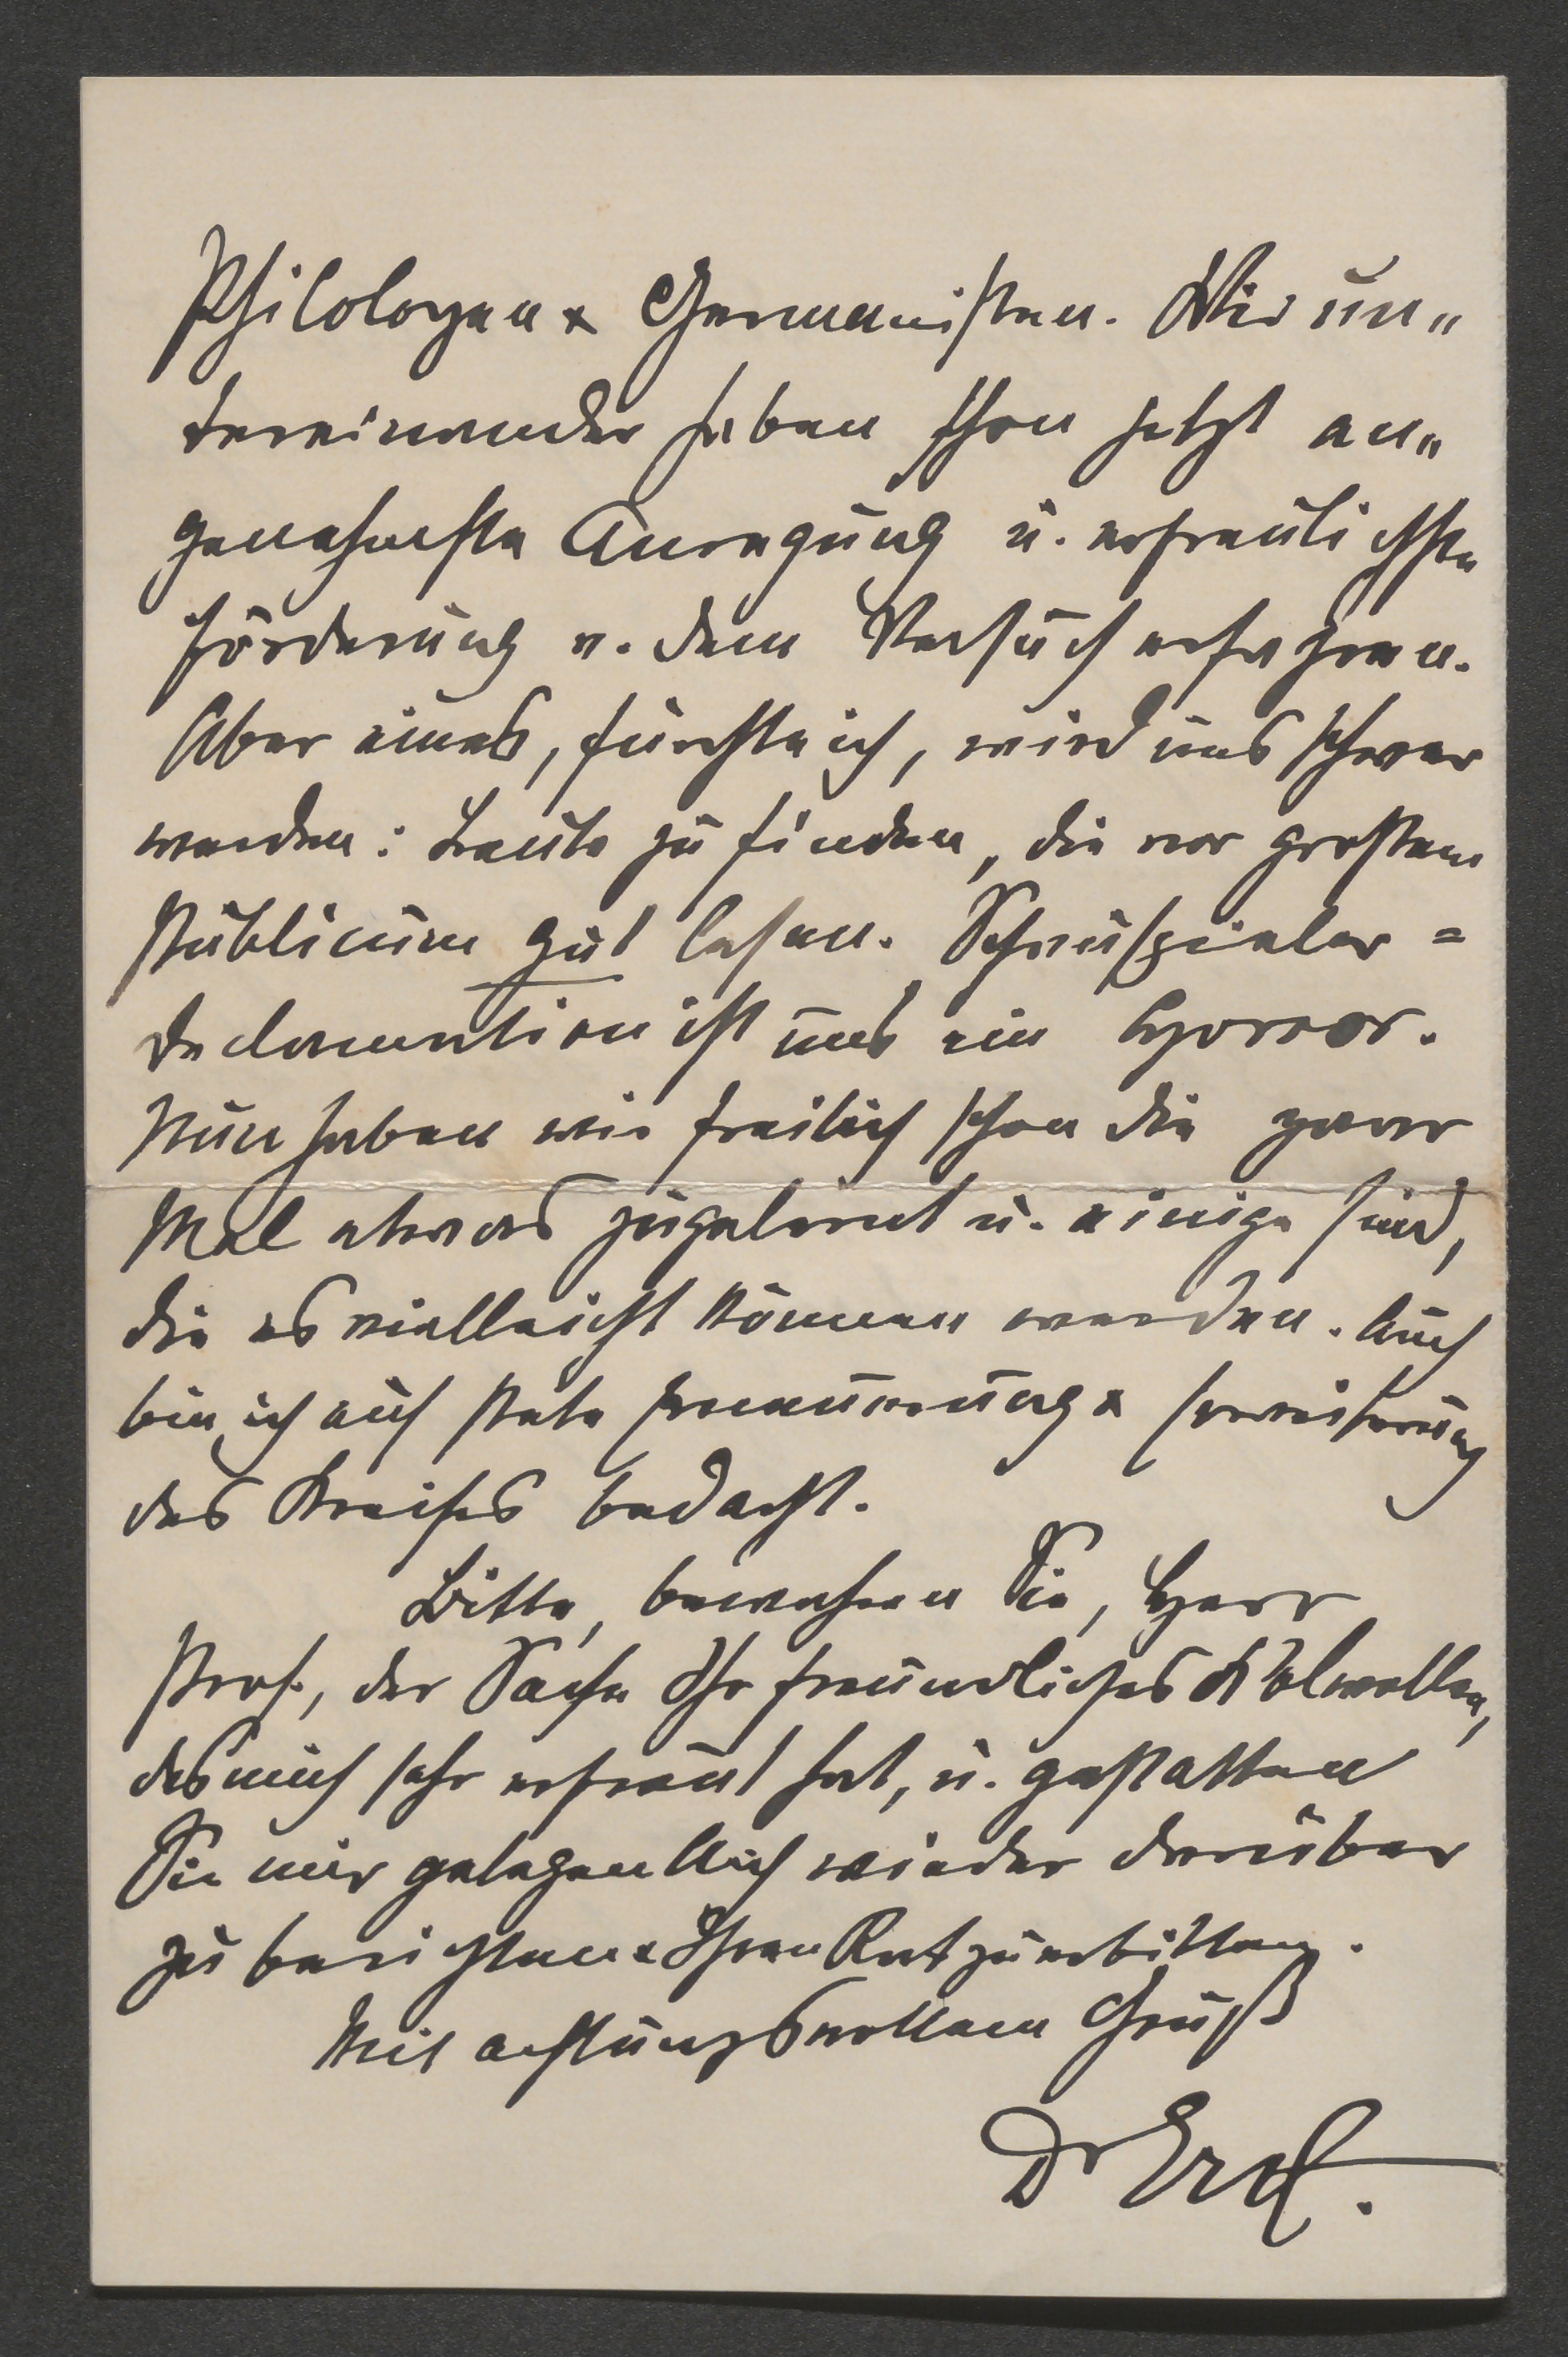 Philologen & Germanisten. Wir un„
tereinander haben schon jetzt an„
genehmste Anregung u. erfreulichste
Förderung v. dem Versuch erfahren.
Aber eines, fürchte ich, wird uns schwer
werden: Leute zu finden, die vor großem
Publicum gut lesen. Schauspieler=
declamation ist uns ein Horror.
Nun haben wir freilich schon die paar
Mal etwas zugelernt u. einige sind,
die es vielleicht können werden. Auch
bin ich auf stete Erneuerung & Erweiterung
des Kreises bedacht.
Bitte, bewahren Sie, Herr
Prof., der Sache Ihr freundliches Wolwollen,
das mich sehr erfreut hat, u. gestatten
Sie mir gelegentlich wieder darüber
zu berichten & Ihren Rat zu erbitten.
Mit achtungsvollem Gruß
Dr